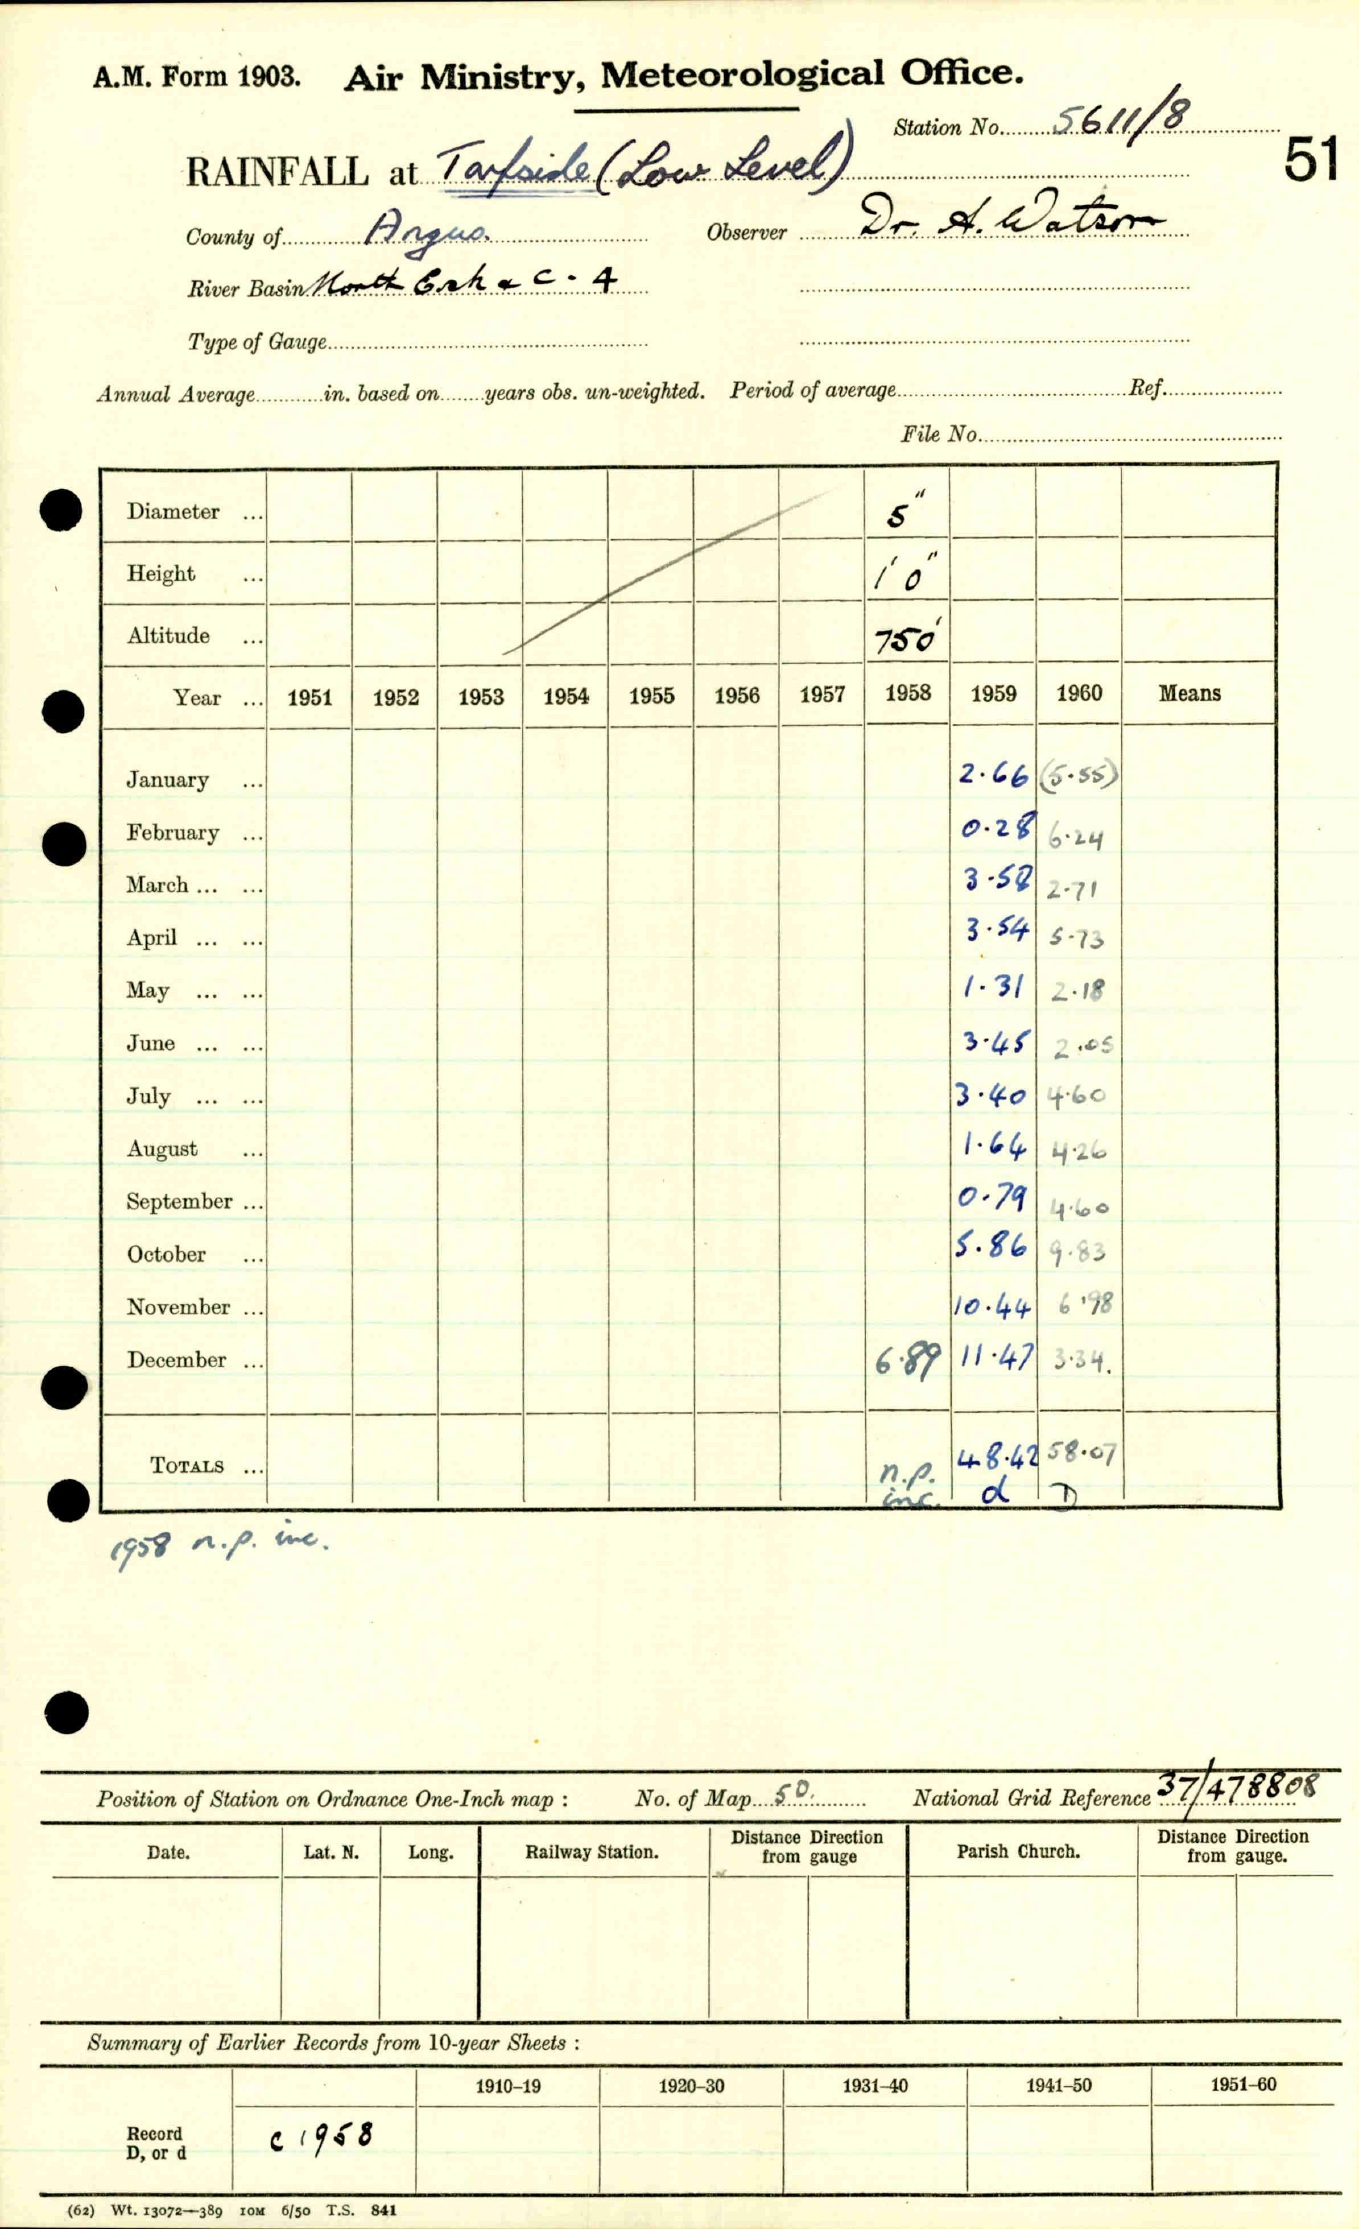 A.M. Form 1903. Air Ministry, Meteorological Office.
Station No. 5611/8
51
RAINFALL at Tarfside (Low Level)
County of Angus. Observer Dr. A. Watson
River Basin North Esk & C - 4
Type of Gauge
Annual Average in. based on years obs. un-weighted. Period of average Ref.
File No.
Diameter ... 5"
Height ... 1' 0"
Altitude ... 750'
Year ... 1951 1952 1953 1954 1955 1956 1957 1958 1959 1960 Means
January ... 2.66 (5.55)
February ... 0.28 6.24
March ... ... 3.58 2.71
April ... ... 3.54 5.73
May ... ... 1.31 2.18
June ... ... 3.45 2.05
July ... ... 3.40 4.60
August ... 1.64 4.26
September ... 0.79 4.60
October ... 5.86 9.83
November ... 10.44 6.98
December ... 6.89 11.47 3.34.
TOTALS ... n.p. inc. 48.42 d 58.07 D
1958 n.p. inc.
Position of Station on Ordnance One-Inch map : No. of Map 50. National Grid Reference 37/478808
Date. Lat. N. Long. Railway Station. Distance Direction from gauge Parish Church. Distance Direction from gauge.
Summary of Earlier Records from 10-year Sheets :
1910-19 1920-30 1931-40 1941-50 1951-60
Record D, or d c 1958
(62) Wt. 13072—389 10M 6/50 T.S. 841